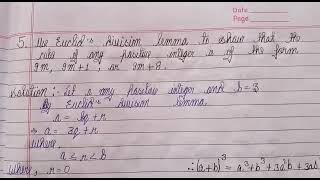 Date
Page
5. Use Euclid's division lemma to show that the
cube of any positive integer is of the form
9m, 9m+1, or 9m+8.
Solution :- Let a any positive integer and b=3
By Euclid's division lemma.
a = bq + r
⇒ a = 3q + r
where,
a ≤ r < b
where, r = 0
∴ (a+b)³ = a³+b³+3a²b+3ab